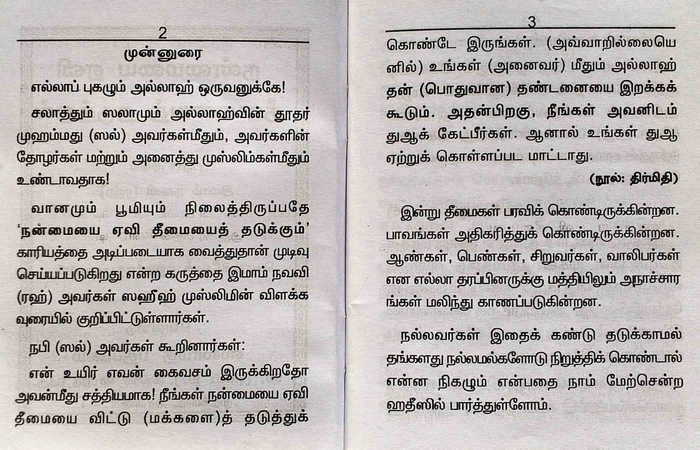 2
முன்னுரை
எல்லாப் புகழும் அல்லாஹ் ஒருவனுக்கே!
சலாத்தும் ஸலாமும் அல்லாஹ்வின் தூதர்
முஹம்மது (ஸல்) அவர்கள்மீதும், அவர்களின்
தோழர்கள் மற்றும் அனைத்து முஸ்லிம்கள்மீதும்
உண்டாவதாக!
வானமும் பூமியும் நிலைத்திருப்பதே
'நன்மையை ஏவி தீமையைத் தடுக்கும்'
காரியத்தை அடிப்படையாக வைத்துதான் முடிவு
செய்யப்படுகிறது என்ற கருத்தை இமாம் நவவி
(ரஹ்) அவர்கள் ஸஹீஹ் முஸ்லிமின் விளக்க
வுரையில் குறிப்பிட்டுள்ளார்கள்.
நபி (ஸல்) அவர்கள் கூறினார்கள்:
என் உயிர் எவன் கைவசம் இருக்கிறதோ
அவன்மீது சத்தியமாக! நீங்கள் நன்மையை ஏவி
தீமையை விட்டு (மக்களை)த் தடுத்துக்
3
கொண்டே இருங்கள். (அவ்வாறில்லையெ
னில்) உங்கள் (அனைவர்) மீதும் அல்லாஹ்
தன் (பொதுவான) தண்டனையை இறக்கக்
கூடும். அதன்பிறகு, நீங்கள் அவனிடம்
துஆக் கேட்பீர்கள். ஆனால் உங்கள் துஆ
ஏற்றுக் கொள்ளப்பட மாட்டாது.
(நூல்: திர்மிதி)
இன்று தீமைகள் பரவிக் கொண்டிருக்கின்றன.
பாவங்கள் அதிகரித்துக் கொண்டிருக்கின்றன.
ஆண்கள், பெண்கள், சிறுவர்கள், வாலிபர்கள்
என எல்லா தரப்பினருக்கு மத்தியிலும் அநாச்சார
ங்கள் மலிந்து காணப்படுகின்றன.
நல்லவர்கள் இதைக் கண்டு தடுக்காமல்
தங்களது நல்லமல்களோடு நிறுத்திக் கொண்டால்
என்ன நிகழும் என்பதை நாம் மேற்சென்ற
ஹதீஸில் பார்த்துள்ளோம்.